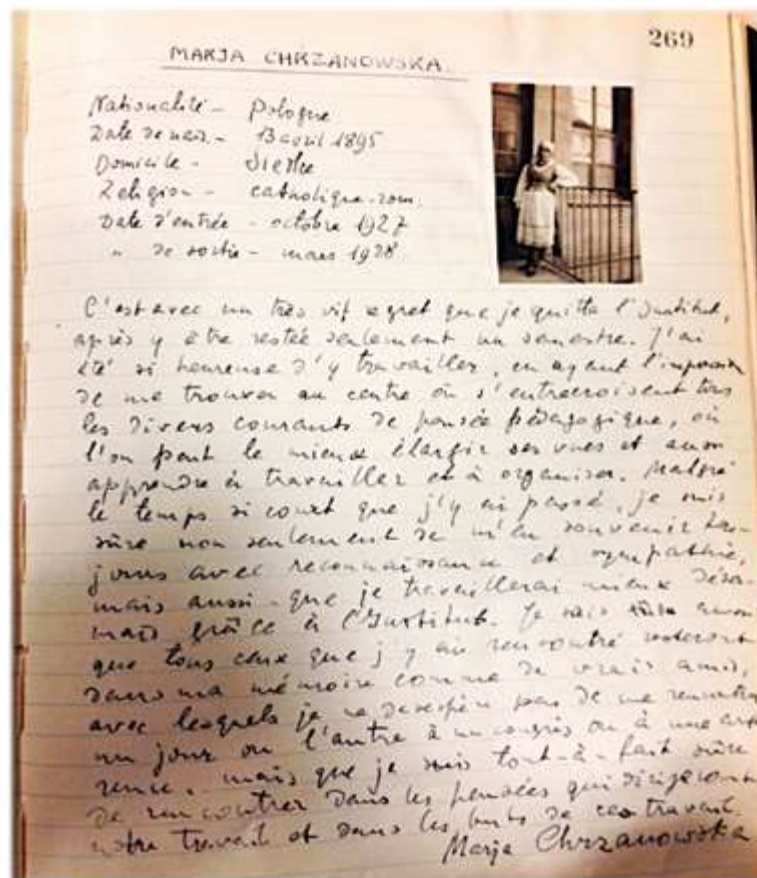 269
MARJA CHRZANOWSKA
Nationalité - Pologne
Date de nais. - 13 avril 1895
Domicile - Siedlce
Religion - catholique-rom.
Date d'entrée - octobre 1927
" de sortie - mars 1928
C'est avec un très vif regret que je quitte l'Institut,
après y être restée seulement un semestre. J'ai
été si heureuse d'y travailler, en ayant l'impression
de me trouver au centre où s'entrecroisent tous
les divers courants de pensée pédagogique, où
l'on peut le mieux élargir ses vues et aussi
apprendre à travailler et à organiser. Malgré
le temps si court que j'y ai passé, je suis
sûre non seulement de m'en souvenir tou-
jours avec reconnaissance et sympathie,
mais aussi que je travaillerai mieux désor-
mais grâce à l'Institut. Je suis sûre aussi
que tous ceux que j'y ai rencontré resteront
dans ma mémoire comme de vrais amis,
avec lesquels je ne désespère pas de me rencontrer
un jour ou l'autre à un congrès ou à une
rence, mais que je suis tout-à-fait sûre
de rencontrer dans les pensées qui dirigeront
notre travail et dans les buts de ce travail.
Marja Chrzanowska